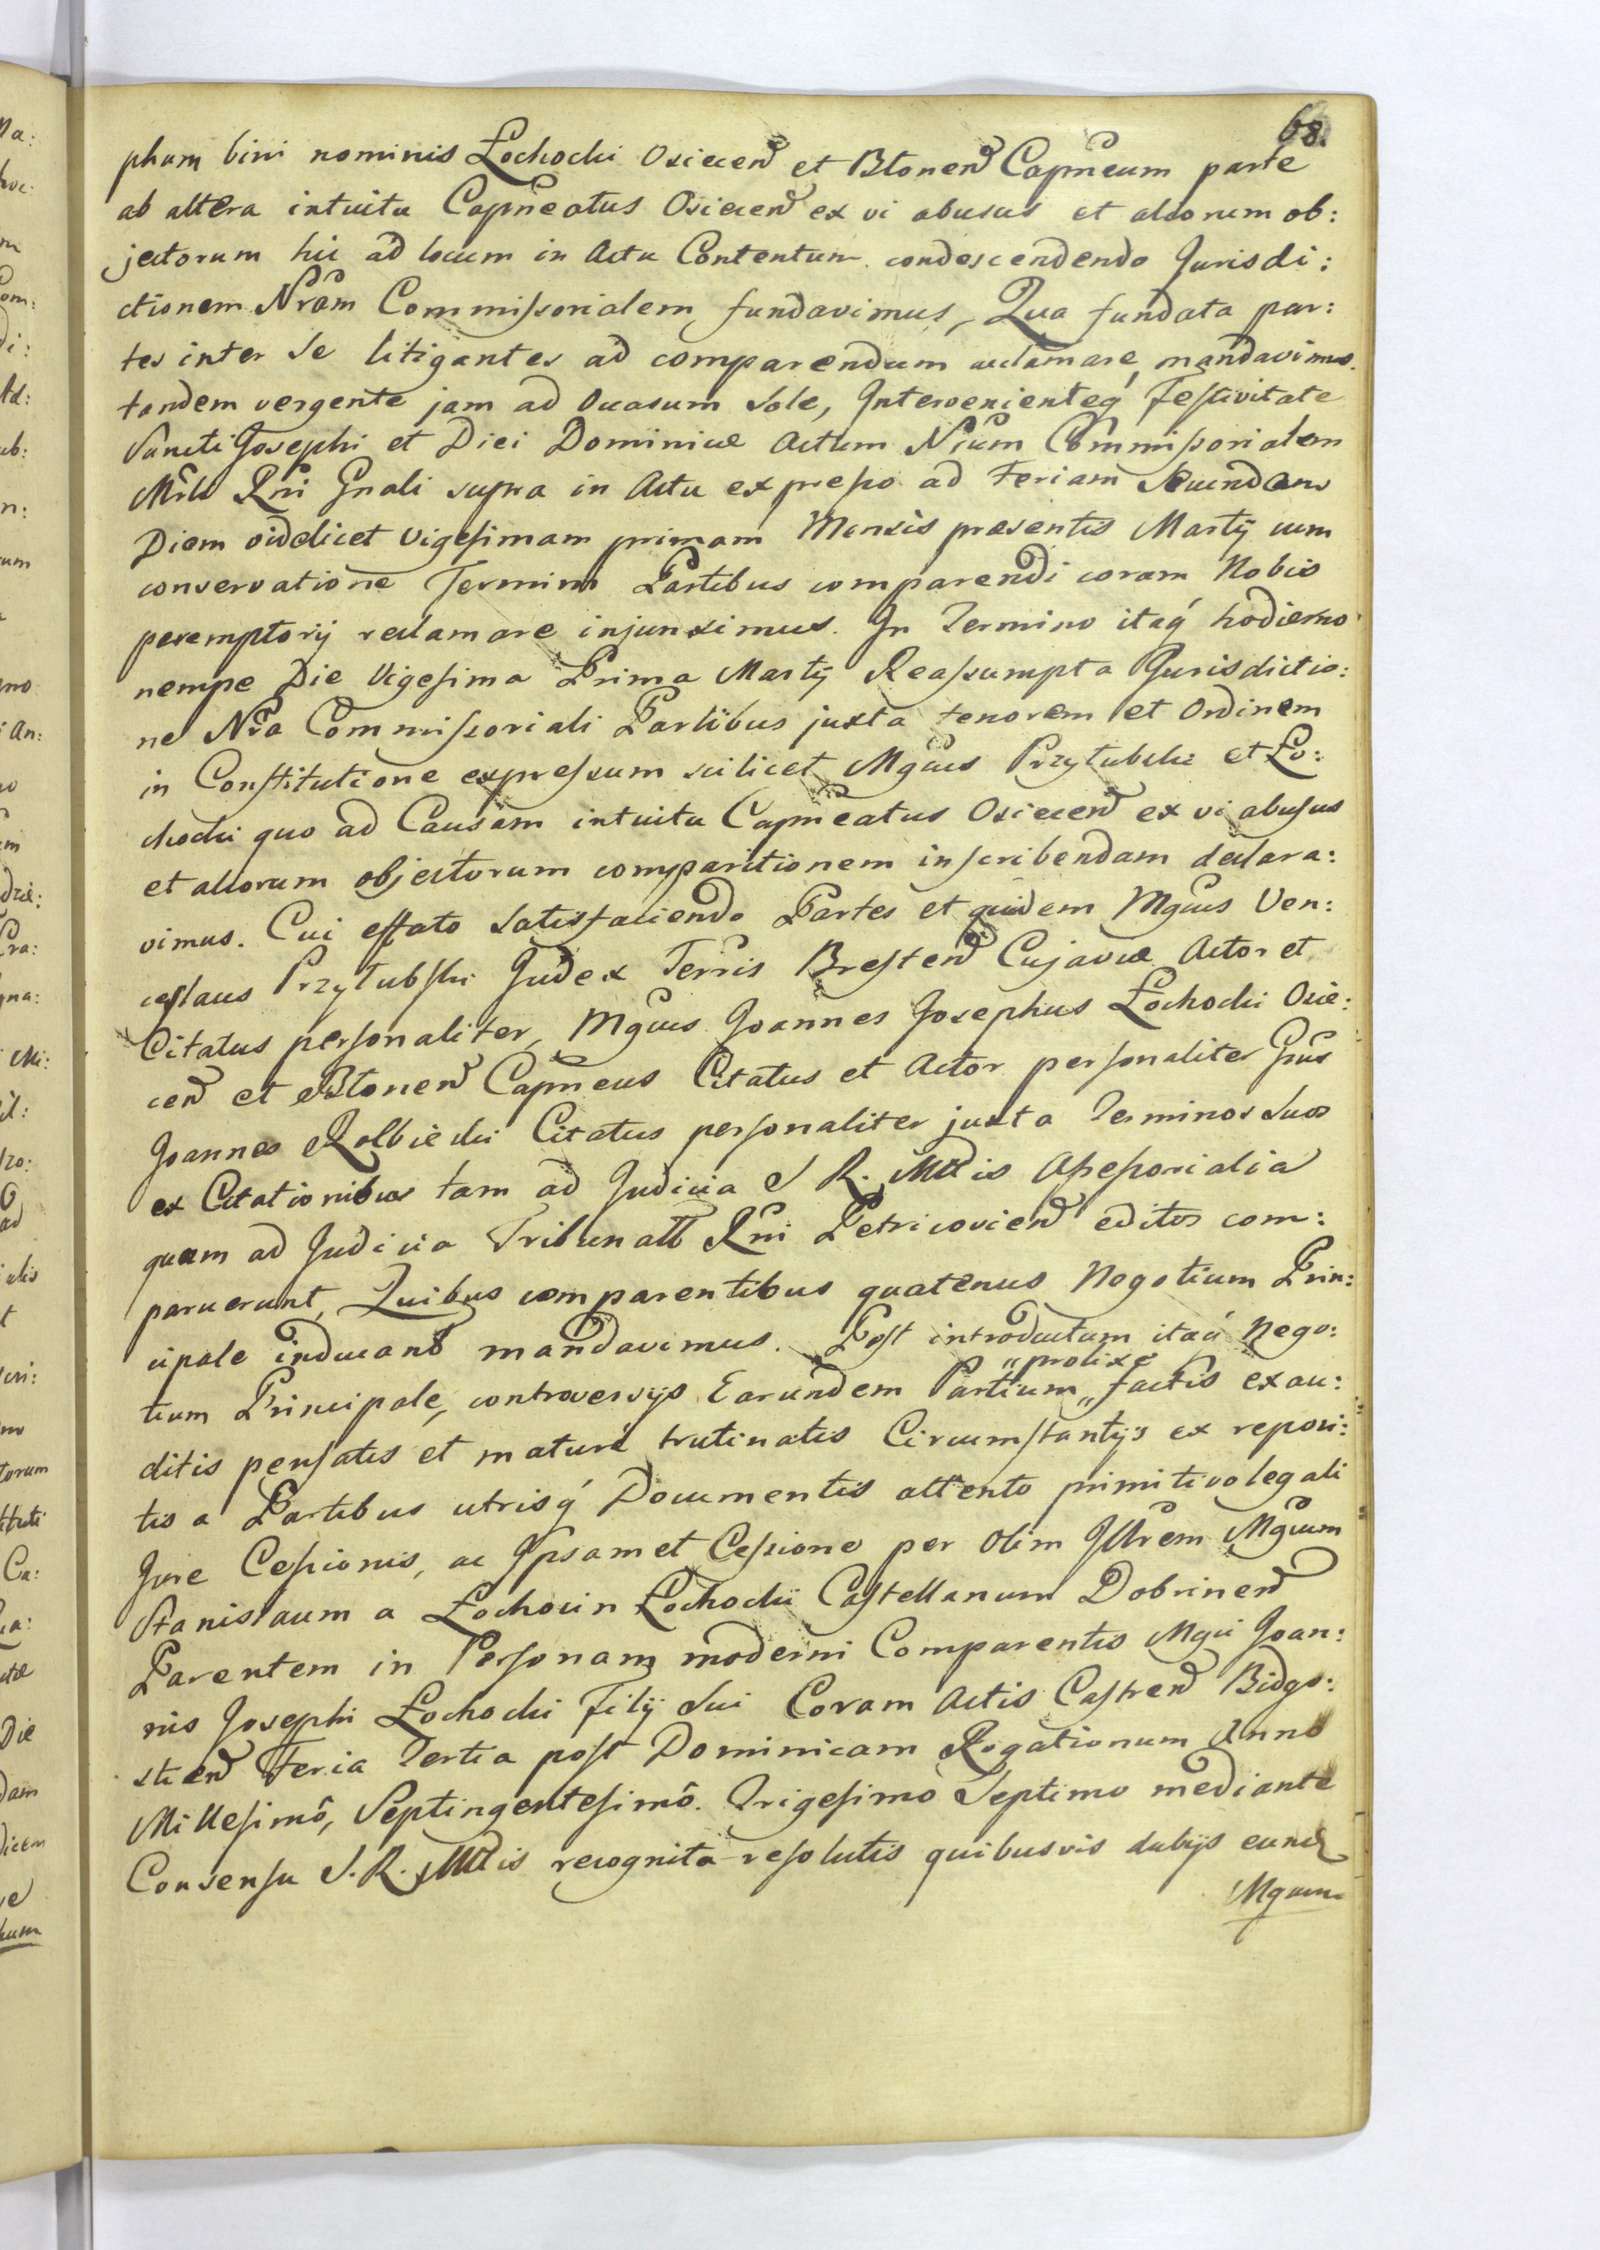 68.
phum bini nominis Łochocki Osiecen̄ et Btonen̄ Capn̄eum parte
ab altera intuitu Capn̄eatus Osiecen̄ ex vi abusus et aliorum ob:
jectorum hic ad locum in Actu Contentum condescendendo Jurisdi:
ctionem Nr̄am Commissorialem fundavimus, Qua fundata par:
tes inter se litigantes ad comparendum aclamare mandavimus.
tandem vergente jam ad Occasum Sole, Intervenienteq́ Festivitate
Sancti Josephi et Diei Dominicæ Actum Nr̄um Commissorialem
Rn̄i Gnali supra in Actu expresso ad Feriam Secundam
Diem videlicet Vigesimam primam Mensis præsentis Martij cum
conservatione Termini Partibus comparendi coram Nobis
peremptorij reclamare injunximus. In Termino itaq́ hodierno
nempe Die Vigesima Prima Martij Reassumpta Jurisdictio:
ne Nr̄a Commissoriali Partibus juxta tenorem et Ordinem
in Constitutione expressum scilicet Mgcus Przyłubski et Ło:
chocki quo ad Causam intuitu Capn̄eatus Osiecen̄ ex vi abusus
et aliorum objectorum comparitionem inscribendam declara:
vimus. Cui effato satisfaciendo Partes et quidem Mgcus Ven:
ceslaus Przyłubski Judex Terris Bresten̄ Cujaviæ Actor et
Citatus personaliter, Mgcus Joannes Josephus Łochocki Osie:
cen̄ et Btonen̄ Capn̄eus Citatus et Actor personaliter Gn̄us
Joannes Kolbiecki Citatus personaliter juxta Terminos suos
ex Citationibus tam ad Judicia S R. Mttis Assessorialia
quam ad Judicia Tribunalis Rn̄i Petricovien̄ editos com:
paruerunt, Quibus comparentibus quatenus Negotium Prin:
cipale inducant mandavimus. Post introductum itaq́ Nego:
tium Principale, controversijs Earundem Partium „prolixe„ factis exau:
ditis pensatis et maturé trutinatis Circumstantijs ex reposi:
tis a Partibus utrisq́ Documentis attento primitivo legali
Jure Cessionis, ac Ipsamet Cessione per Olim Illr̄em Mgcum
Stanisłaum a Łochocin Łochocki Castellanum Dobrinen̄
Parentem in Personam moderni Comparentis Mgci Joan:
nis Josephi Łochocki Filij Sui Coram Actis Castren̄ Bidgo:
stien̄ Feria Tertia post Dominicam Rogationum Anno
Millesimô, Septingentesimô. Trigesimo Septimo mediante
Consensu S. R. Mttis recognita resolutis quibusvis dubijs eund
Mgcum